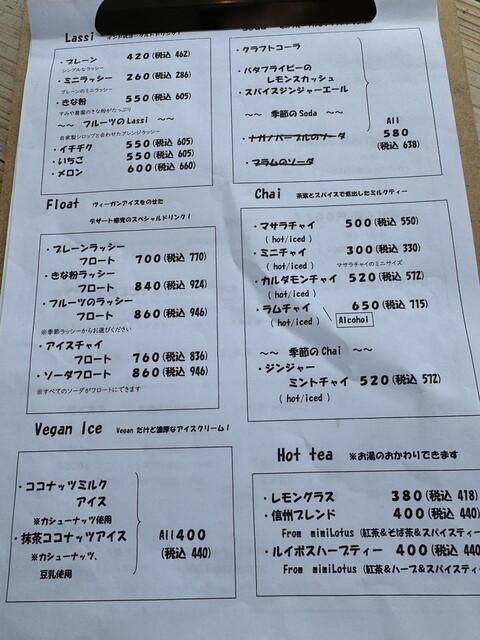 Lassi
・プレーン 420(税込 462)
シンプルなラッシー
・ミニラッシー 260(税込 286)
プレーンのミニラッシー
・きな粉 550(税込 605)
すみや農園のきな粉がたっぷり
～～ フルーツのLassi ～～
自家製シロップと合わせたアレンジラッシー
・イチヂク 550(税込 605)
・いちご 550(税込 605)
・メロン 600(税込 660)
Float ヴィーガンアイスをのせた
デザート感覚のスペシャルドリンク!
・プレーンラッシー
フロート 700(税込 770)
・きな粉ラッシー
フロート 840(税込 924)
・フルーツのラッシー
フロート 860(税込 946)
※季節ラッシーからお選びください
・アイスチャイ
フロート 760(税込 836)
・ソーダフロート 860(税込 946)
※すべてのソーダがフロートにできます
Vegan Ice Vegan だけど濃厚なアイスクリーム!
・ココナッツミルク
アイス
※カシューナッツ使用
・抹茶ココナッツアイス
※カシューナッツ、
豆乳使用
All 400
(税込 440)
・クラフトコーラ
・バタフライピーの
レモンスカッシュ
・スパイスジンジャーエール
～～ 季節の Soda ～～
・ナガノパープルのソーダ
・プラムのソーダ
All
580
(税込 638)
Chai 茶葉とスパイスで煮出したミルクティー
・マサラチャイ 500(税込 550)
( hot/iced )
・ミニチャイ 300(税込 330)
( hot/iced ) マサラチャイのミニサイズ
・カルダモンチャイ 520(税込 572)
( hot/iced )
・ラムチャイ 650(税込 715)
( hot/iced ) Alcohol
～～ 季節の Chai ～～
・ジンジャー
ミントチャイ 520(税込 572)
( hot/iced )
Hot tea ※お湯のおかわりできます
・レモングラス 380(税込 418)
・信州ブレンド 400(税込 440)
From mimiLotus (紅茶&そば茶&スパイスティー
・ルイボスハーブティー 400(税込 440
From mimiLotus (紅茶&ハーブ&スパイスティー